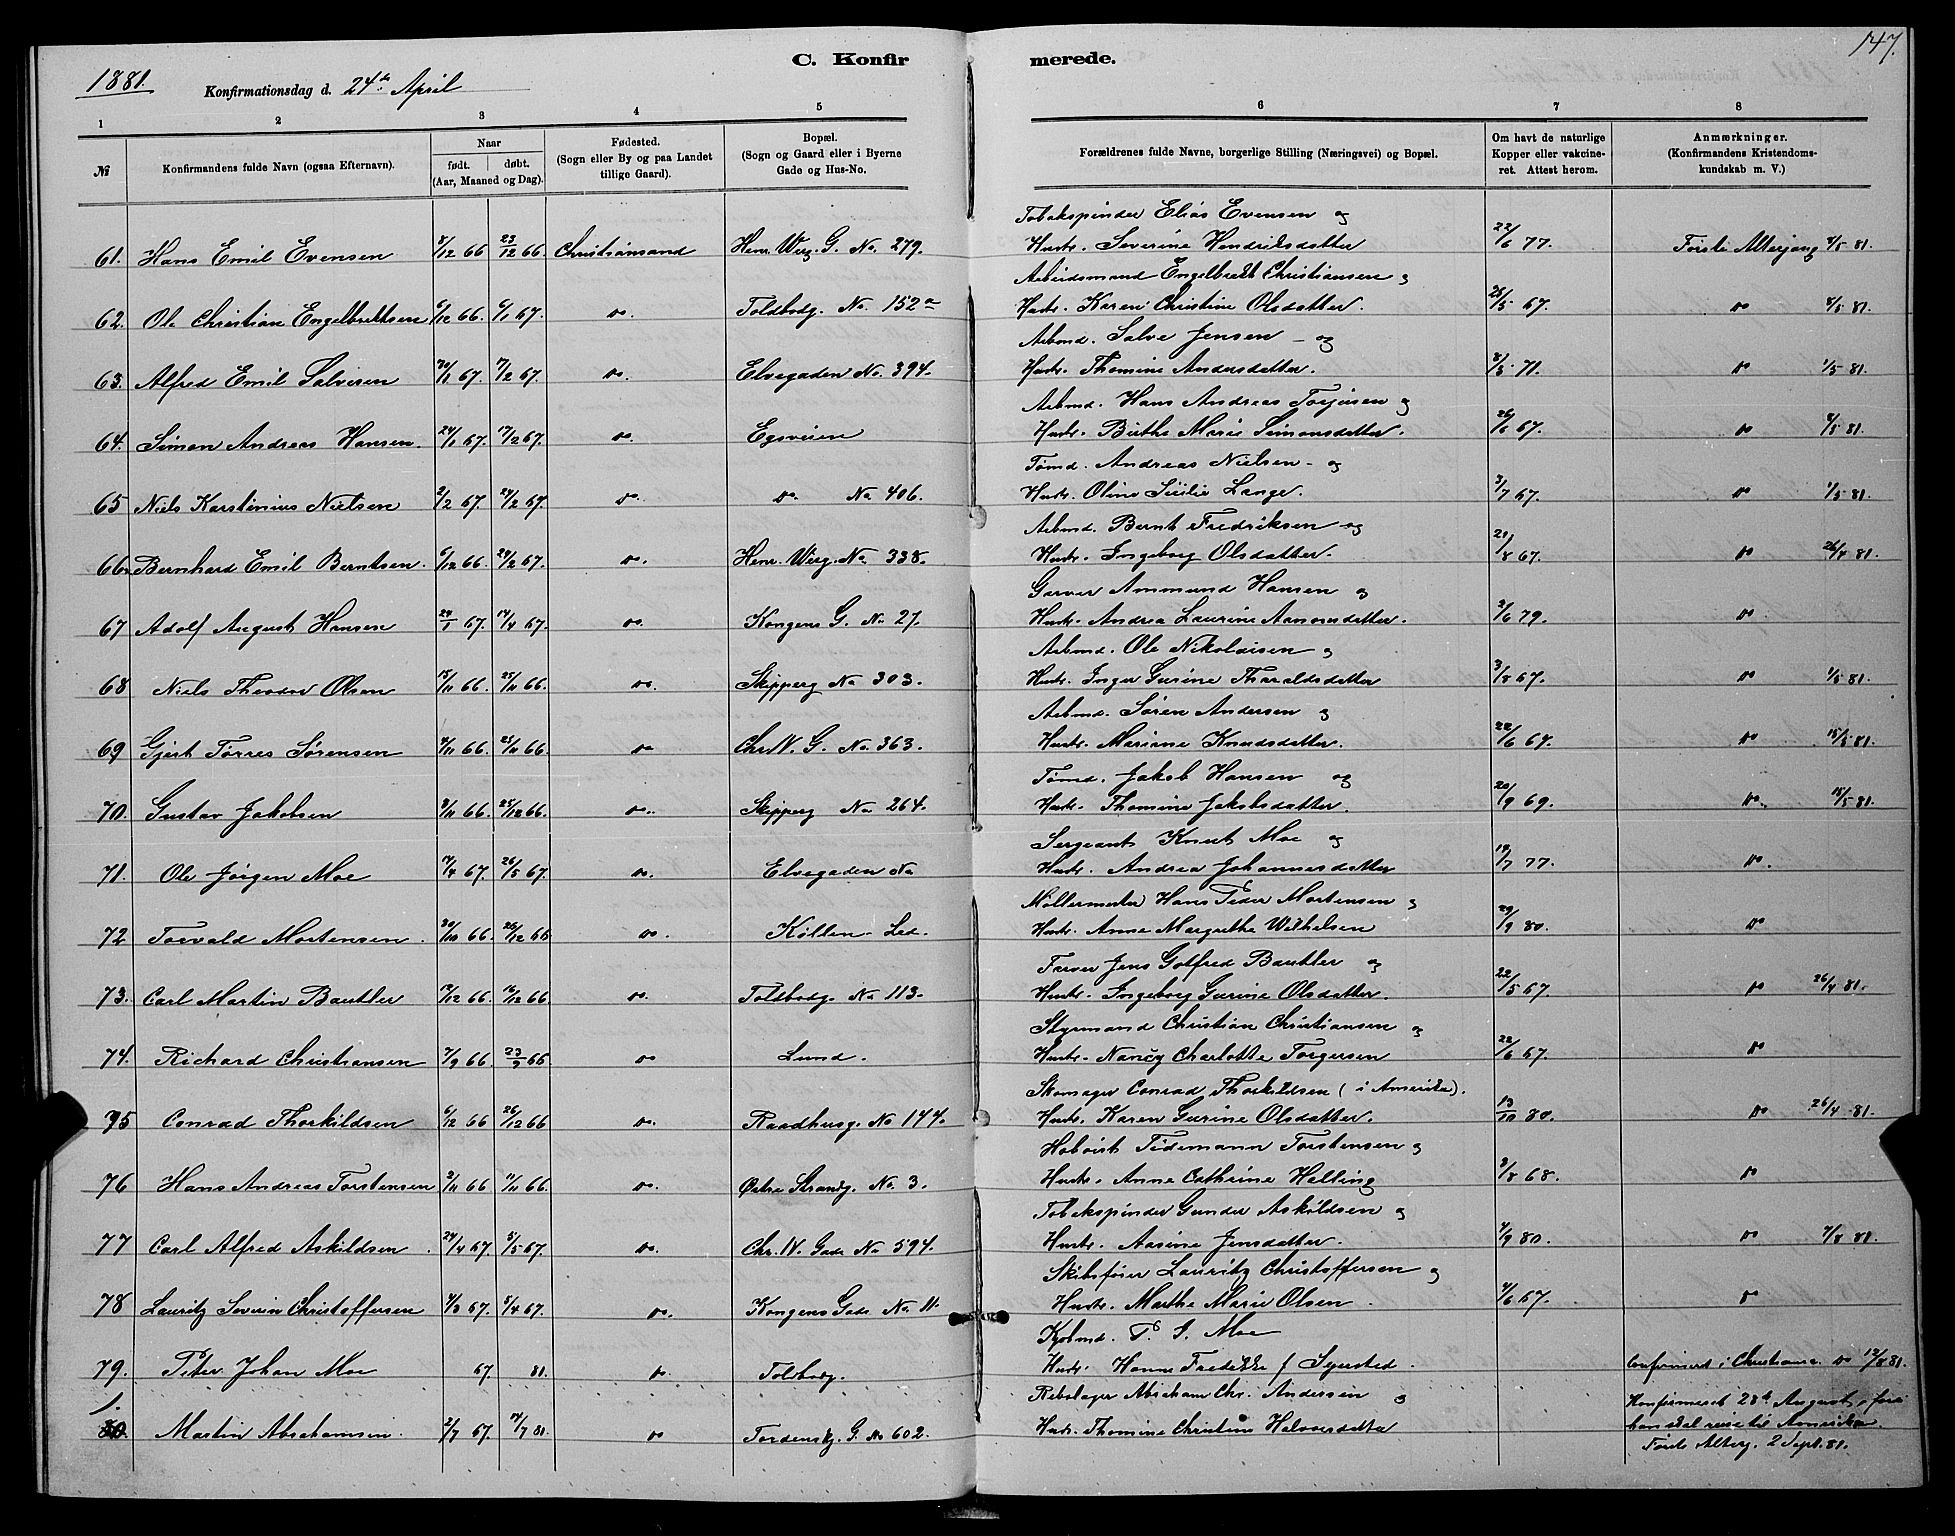 147.
C. Konfirmerede.
1881. Konfirmationsdag d. 24de April
1 2 3 4 5 6 7 8
№ Konfirmandens fulde Navn (ogsaa Efternavn). Naar født. døbt. (Aar, Maaned og Dag). Fødested. (Sogn eller By og paa Landet tillige Gaard). Bopæl. (Sogn og Gaard eller i Byerne Gade og Hus-No. Forældrenes fulde Navne, borgerlige Stilling (Næringsvei) og Bopæl. Om havt de naturlige Kopper eller vakcineret. Attest herom. Anmærkninger. (Konfirmandens Kristendomskundskab m. V.)
Tobakspinder Elias Evensen og
61. Hans Emil Evensen 8/12 66 23/12 66. Christiansand Henr. Werg. G. No. 279. Hustr. Severine Hendriksdatter 22/6 77. Første Altergang 8/5 81.
Arbeidsmand Engelbrett Christiansen og
62. Ole Christian Engelbrettsen 6/12 66. 6/1 67. do. Toldbodg. No. 152a Hustr. Karen Christine Olsdatter. 28/5 67. do 8/5 81.
Arbmd. Salve Jensen - og
63. Alfred Emil Salvesen 20/1 67. 7/2 67. do. Elvegaden No. 394. Hustr. Thomine Andersdatter. 8/5 71. do 1/5 81.
Arbmd. Hans Andreas Torjusen og
64. Simon Andreas Hansen. 24/1 67. 17/2 67. do. Egsveien Hustr. Birthe Marie Simonsdatter. 26/6 67. do 8/5 81.
Tømd. Andreas Nielsen - og
65 Niels Karstinius Nielsen 2/2 67. 24/2 67. do. do No 406. Hustr. Oline Sissilie Lange. 3/7 67. do 1/5 81.
Arbmd. Bernt Fredriksen og
66. Bernhard Emil Berntsen. 6/12 66. 24/2 67. do. Henr. Werg. No. 338. Hustr. Ingeborg Olsdatter. 21/8 67. do 26/4 81.
Garver Ammund Hansen og
67 Adolf August Hansen 24/1 67. 14/4 67. do. Kongens G. No 27. Hustr. Andrea Laurine Aanonsdatter. 2/6 79. do.
Arbmd. Ole Nikolaisen og
68 Niels Theodor Olsen 13/11 66. 25/11 66. do. Skipperg No 303. Hustr. Inger Gurine Tharaldsdatter 3/8 67. do 1/5 81.
Arbmd. Søren Andersen og
69 Gjert Tørres Sørensen 4/11 66. 25/11 66. do Chr. IV. G. No. 363. Hustr. Mariane Knudsdatter. 22/6 67. do 15/5 81.
Tømd. Jakob Hansen og
70. Gustav Jakobsen 8/11 66. 25/12 66. do. Skipperg No 264. Hustr. Thomine Jakobsdatter. 20/9 69. do. 15/5 81.
Sergeant Knut Moe og
71. Ole Jørgen Moe 17/4 67. 26/5 67. do. Elvegaden No Hustr. Andrea Johannesdatter 19/7 77. do.
Møllermester Hans Peder Mortensen og
72 Torvald Mortensen. 30/10 66. 26/12 66 do. Køllen Led. Hustr. Anne Margrethe Wilhelsen 29/9 80. do
Farver Jens Gotfred Bautler og
73. Carl Martin Bautler 7/12 66. 16/12 66 do. Toldbodg. No 113. Hustr. Ingeborg Gurine Olsdatter. 22/5 67. do 26/4 81.
Styrmand Christian Christiansen og
74. Richard Christiansen 7/9 66. 23/9 66 do Lund. Hustr. Nancy Charlotte Torgersen 22/6 67. do
Skomager Conrad Thorkildsen (i Amerika).
75 Conrad Thorkildsen 6/12 66 26/12 66 do. Raadhusg. No 144. Hustr. Karen Gurine Olsdatter. 13/10 80. do 26/4 81.
Hoboist Tidemann Torstensen og
76 Hans Andreas Torstensen 2/11 66 11/11 66. do. Østre Strandg. No. 3. Hustr. Anne Cathrine Helling 9/8 68. do
Tobakspinder Gunder Askildsen og
77 Carl Alfred Askildsen. 24/4 67. 5/5 67. do. Chr. IV. Gade No 594. Hustr. Aasine Jensdatter. 7/9 80. do 7/8 81.
Skibsfører Lauritz Christoffersen og
78 Lauritz Severin Christoffersen 7/3 67. 5/4 67. do. Kongens Gade No. 11. Hustr. Marthe Marie Olsen. 4/6 67. do
Kjøbmd. P. S. Moe
79. Peter Johan Moe 67. 81. do. Tolbodg. Hustr. Hanne Fredikke f. Segersted. Confirmert i Christiania do 12/8 81.
Rebslager Abraham Chr. Andersen og Konfirmeret 28de August, fore
1. 80. Martin Abrahamsen. 2/7 67. 14/7 81. do Tordenskj. G. No 602. Hustr. Thomine Christine Halvorsdatter havdel reise til Amerika.
Første Alterg. 2 Sept. 81.